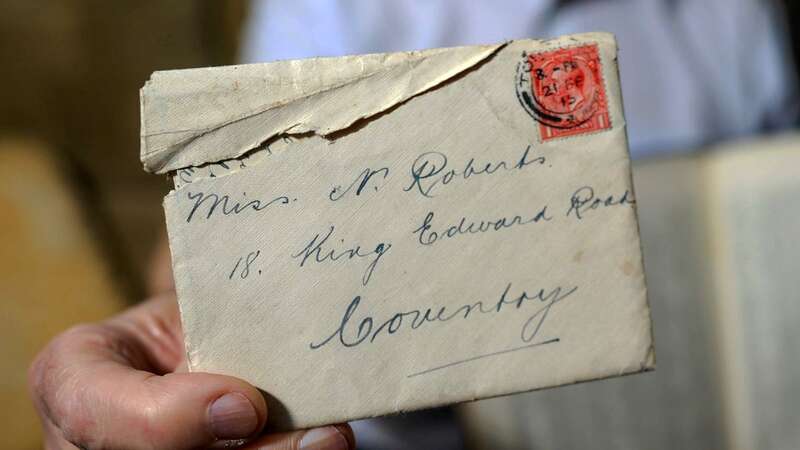 8 - PM
21 SP
15
Miss. N. Roberts.
18. King Edward Road
Coventry